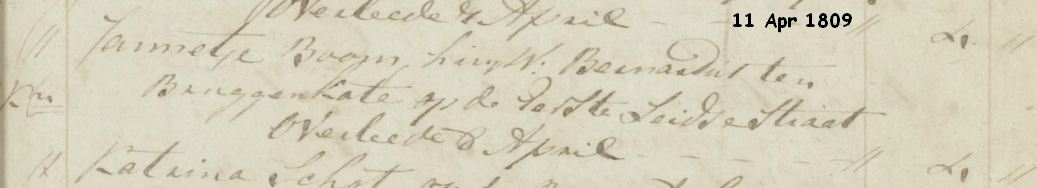 Overleede 8 April - - "
11 Apr 1809
" Jannetje Boom, huysv. Bernardus ten L. "
Bruggenkate op de Eerste Leidse Straat
Overleede 8 April - - - - " L. "
" Katrina Schot op de